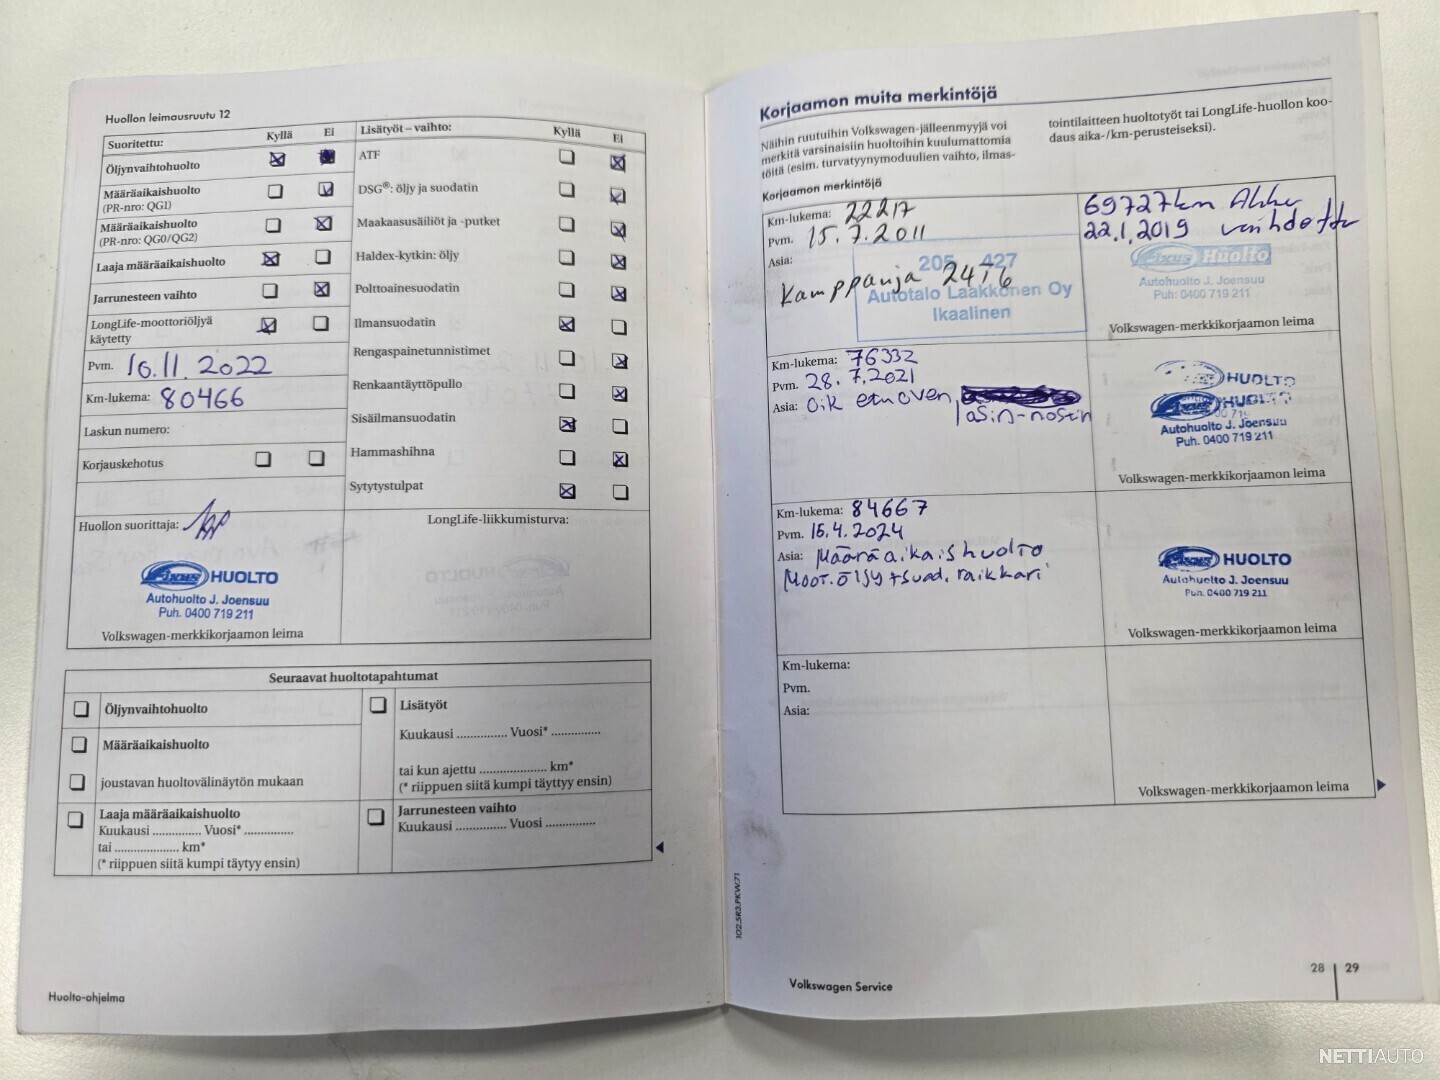 Huollon leimausruutu 12
Suoritettu: Kyllä Ei
Öljynvaihtohuolto
Määräaikaishuolto
(PR-nro: QG1)
Määräaikaishuolto
(PR-nro: QG0/QG2)
Laaja määräaikaishuolto
Jarrunesteen vaihto
LongLife-moottoriöljyä
käytetty
Pvm. 16.11.2022
Km-lukema: 80466
Laskun numero:
Korjauskehotus
Huollon suorittaja:
HUOLTO
Autohuolto J. Joensuu
Puh. 0400 719 211
Volkswagen-merkkikorjaamon leima
Lisätyöt – vaihto: Kyllä Ei
ATF
DSG®: öljy ja suodatin
Maakaasusäiliöt ja -putket
Haldex-kytkin: öljy
Polttoainesuodatin
Ilmansuodatin
Rengaspainetunnistimet
Renkaantäyttöpullo
Sisäilmansuodatin
Hammashihna
Sytytystulpat
LongLife-liikkumisturva:
Seuraavat huoltotapahtumat
Öljynvaihtohuolto
Määräaikaishuolto
joustavan huoltovälinäytön mukaan
Laaja määräaikaishuolto
Kuukausi ............... Vuosi* ...............
tai .................... km*
(* riippuen siitä kumpi täytyy ensin)
Lisätyöt
Kuukausi ............... Vuosi* ...............
tai kun ajettu .................... km*
(* riippuen siitä kumpi täyttyy ensin)
Jarrunesteen vaihto
Kuukausi ............... Vuosi ...............
Huolto-ohjelma
Korjaamon muita merkintöjä
Näihin ruutuihin Volkswagen-jälleenmyyjä voi
merkitä varsinaisiin huoltoihin kuulumattomia
töitä (esim. turvatyynymoduulien vaihto, ilmas-
tointilaitteen huoltotyöt tai LongLife-huollon koo-
daus aika-/km-perusteiseksi).
Korjaamon merkintöjä
Km-lukema: 22217
Pvm. 15.7.2011
Asia:
Kamppanja 24T6
205 427
Autotalo Laakkonen Oy
Ikaalinen
69727km Akku
22.1.2019 vaihdettu
Fixus Huolto
Autohuolto J. Joensuu
Puh: 0400 719 211
Volkswagen-merkkikorjaamon leima
Km-lukema: 76332
Pvm. 28.7.2021
Asia: Oik etuoven
lasin-nostin
HUOLTO
Fixus HUOLTO
Autohuolto J. Joensuu
Puh. 0400 719 211
Volkswagen-merkkikorjaamon leima
Km-lukema: 84667
Pvm. 15.4.2024
Asia: Määräaikaishuolto
Moot.öljy+suod. raikkari
Fixus HUOLTO
Autohuolto J. Joensuu
Puh. 0400 719 211
Volkswagen-merkkikorjaamon leima
Km-lukema:
Pvm.
Asia:
Volkswagen-merkkikorjaamon leima
102.5R3.PKW.71
Volkswagen Service
28 | 29
NETTIAUTO